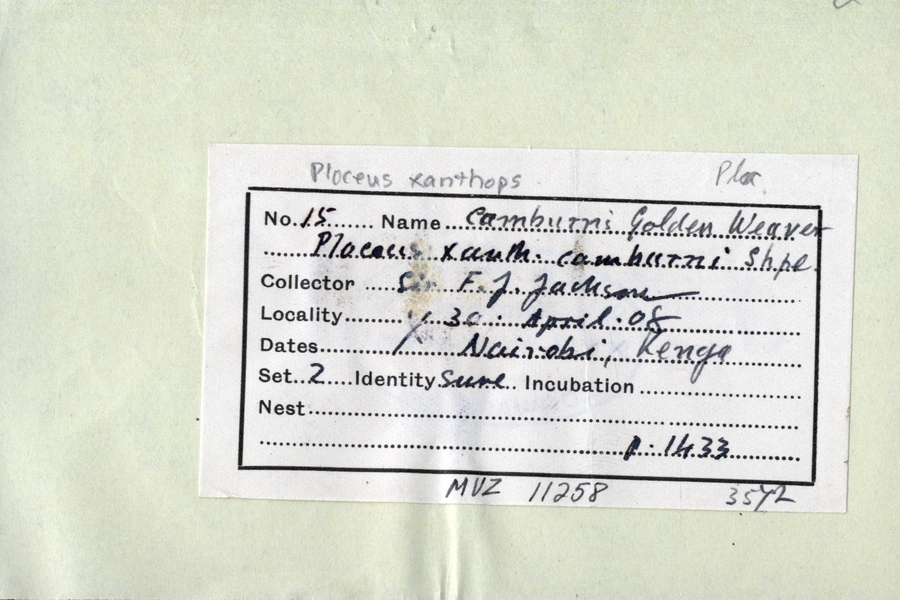 Ploceus xanthops
No. 15 Name Camburni Golden Weaver
Ploceus xanth. camburni Shpe.
Collector Sir F. J. Jackson
Locality 30. April. 08
Dates Nairobi, Kenya
Set 2 Identity sure Incubation
Nest
p. 1433
MVZ 11258